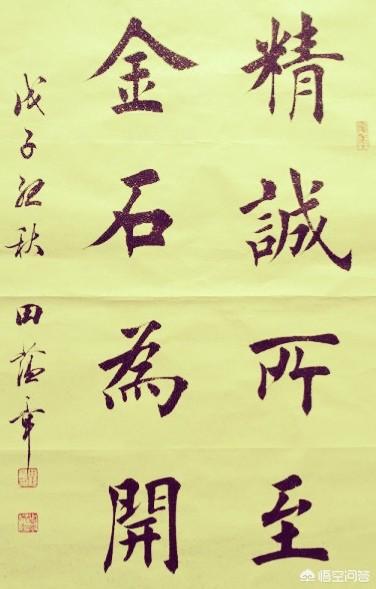 精誠所至
金石為開
戊子秋 田蘊章
悟空问答